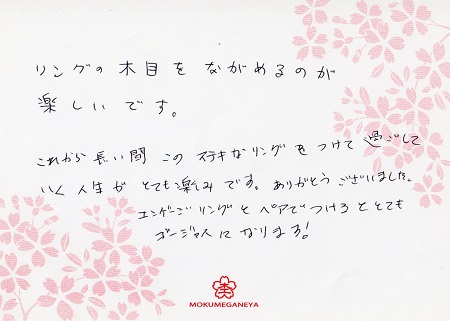 リングの木目をながめるのが
楽しいです。
これから長い間このステキなリングをつけて過ごして
いく人生がとても楽しみです。ありがとうございました。
エンゲージリングとペアでつけるととても
ゴージャスになります!
MOKUMEGANEYA